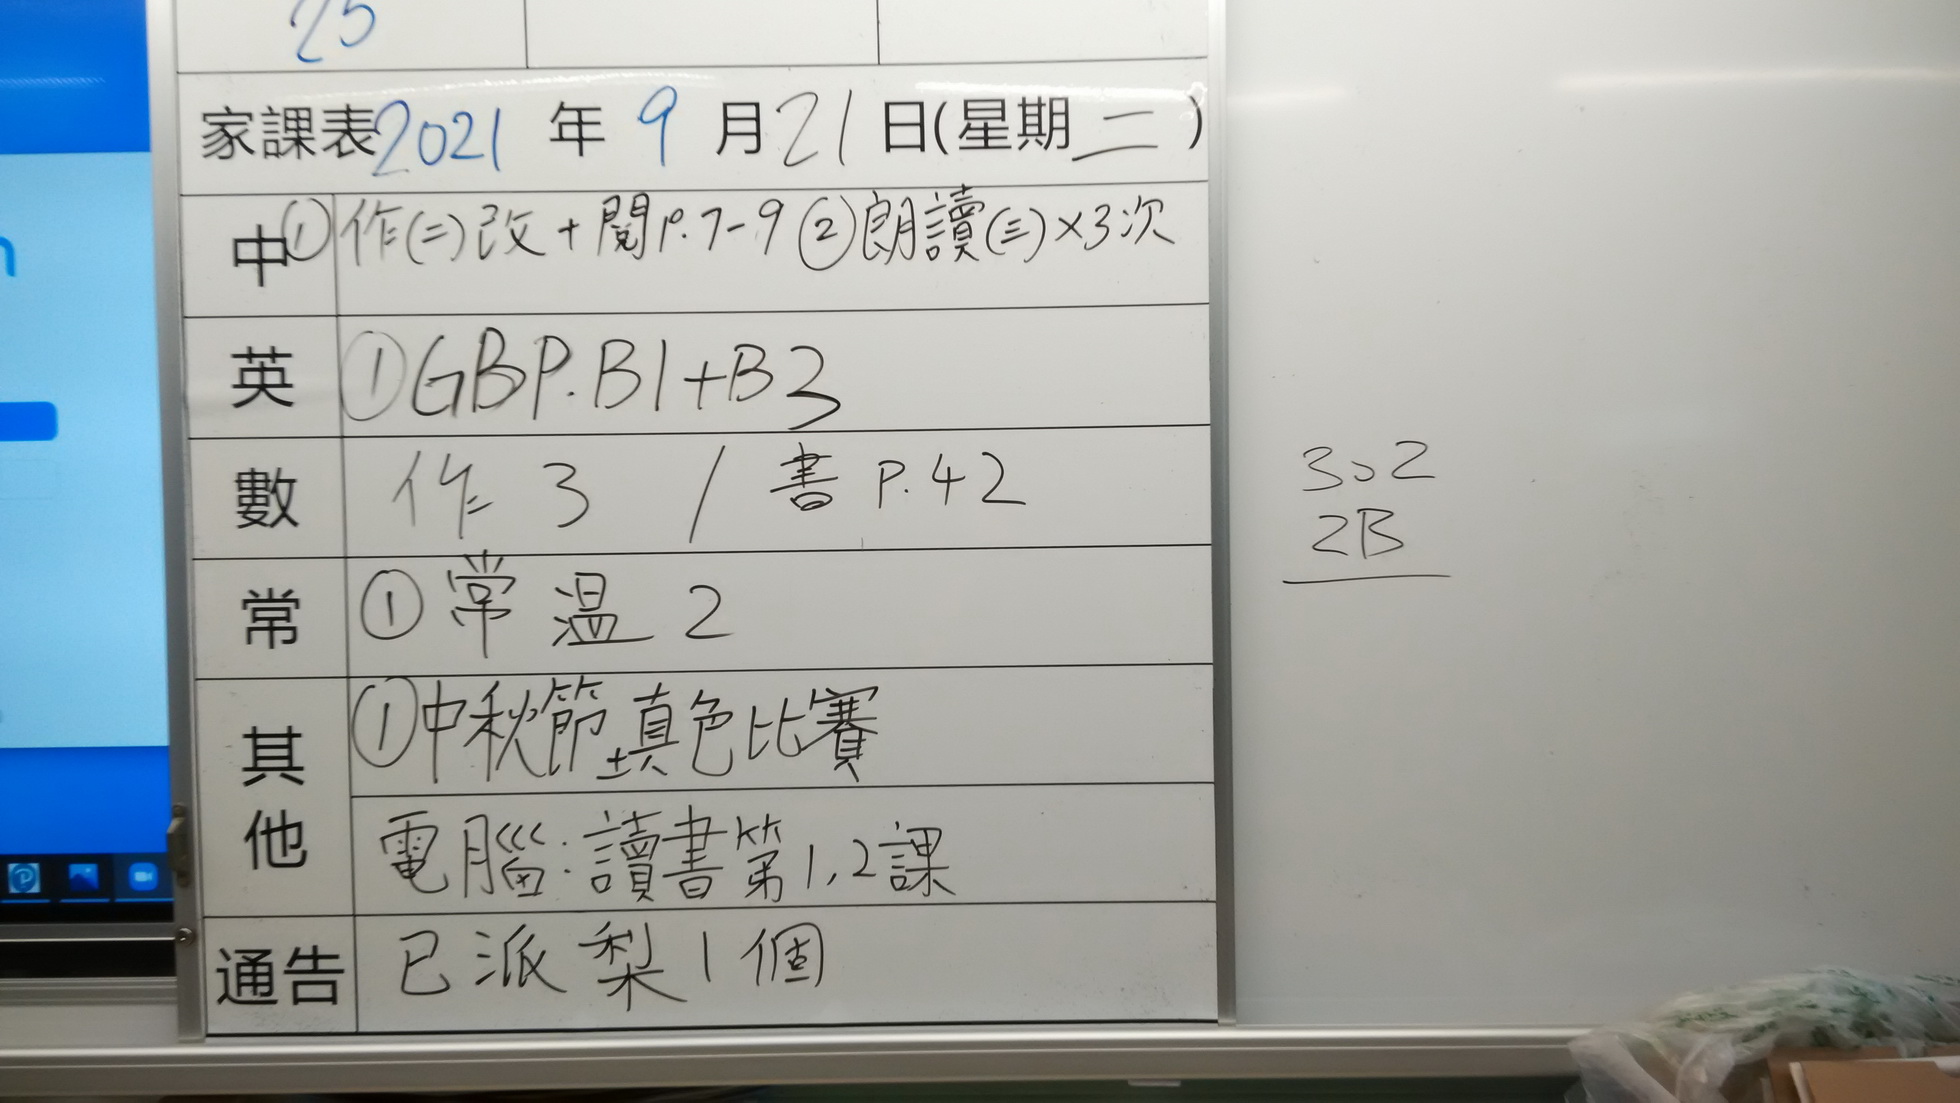 25
家課表2021年9月21日(星期二)
中 ①作(二)改+閱P.7-9 ②朗讀(三)×3次
英 ①GBP.B1+B3
數 作3 / 書P.42
302
2B
常 ①常溫2
其他 ①中秋節填色比賽
電腦:讀書第1,2課
通告 已派梨1個